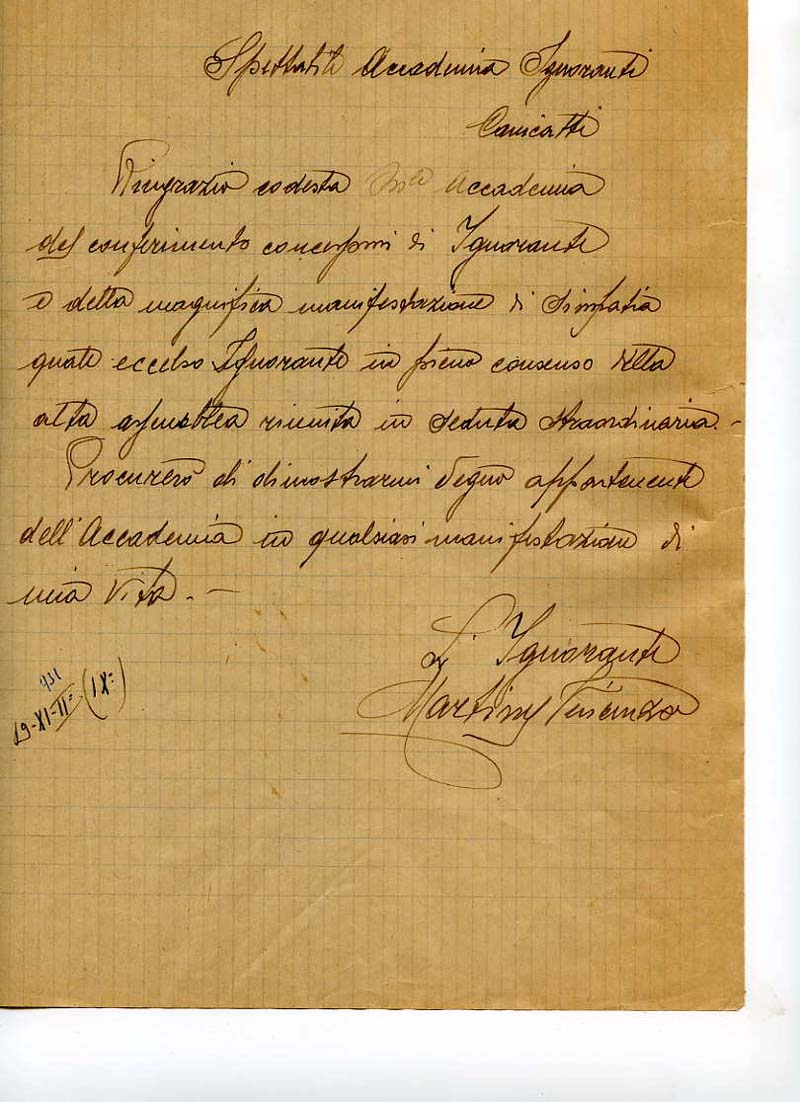 Spettabile Accademia Ignoranti
Canicattì
Ringrazio codesta On.le Accademia
del conferimento concessomi di Ignorante
e della magnifica manifestazione di simpatia
quale eccelso Ignorante in pieno consenso della
alta assemblea riunita in seduta straordinaria. -
Procurerò di dimostrarmi degno appartenente
dell'Accademia in qualsiasi manifestazione di
mia vita. -
L'Ignorante
Martines
19-XI-
931
(IX=)